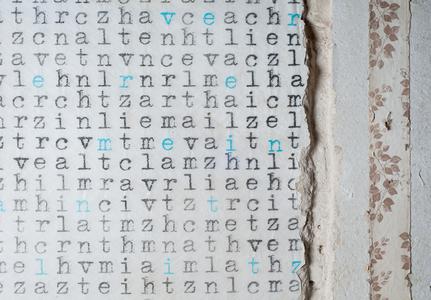 thrczhaveachr
zcnaltenhtlien
zavetnvncevaczl
vlehnlrnrlmelha
acrchtzarthaicm
nrzinliemailzel
ztrcvmtmevaitnt
lvealtclamzhnli
zhilmravrliaehc
amhincivtztrcit
ttrlatmzhcmetz
thcrnthmnathvem
elhvmiaimalathz
ezazteihtznlcma